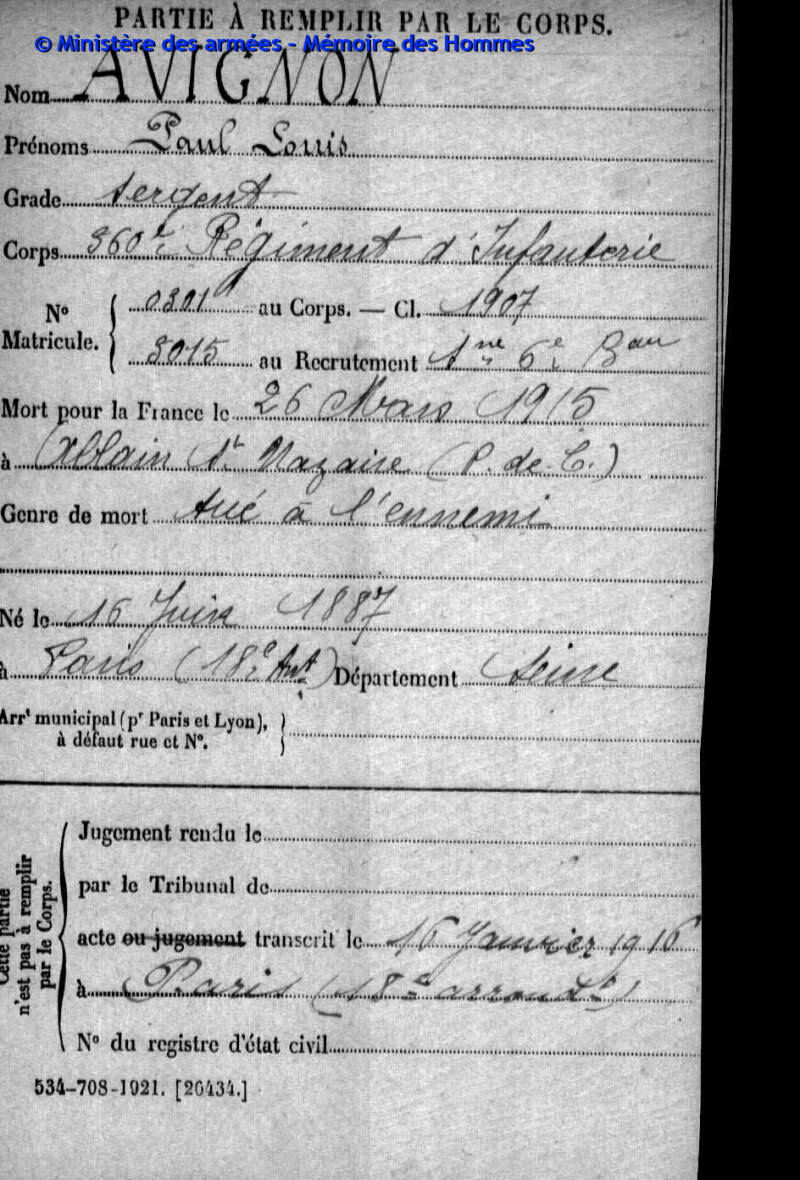 PARTIE À REMPLIR PAR LE CORPS.
© Ministère des armées - Mémoire des Hommes
Nom AVIGNON
Prénoms Paul Louis
Grade Sergent
Corps 360e Régiment d'Infanterie
No Matricule. 0301 au Corps. — Cl. 1907
3015 au Recrutement Sne 6e Bau
Mort pour la France le 26 Mars 1915
à Ablain St Nazaire (P. de C.)
Genre de mort tué à l'ennemi
Né le 16 Juin 1887
à Paris (18e Art) Département Seine
Arrt municipal (pr Paris et Lyon),
à défaut rue et No.
Cette partie
n'est pas à remplir
par le Corps.
Jugement rendu le
par le Tribunal de
acte ou jugement transcrit le 16 Janvier 1916
à Paris (18e arrondt)
No du registre d'état civil
534-708-1921. [26434.]